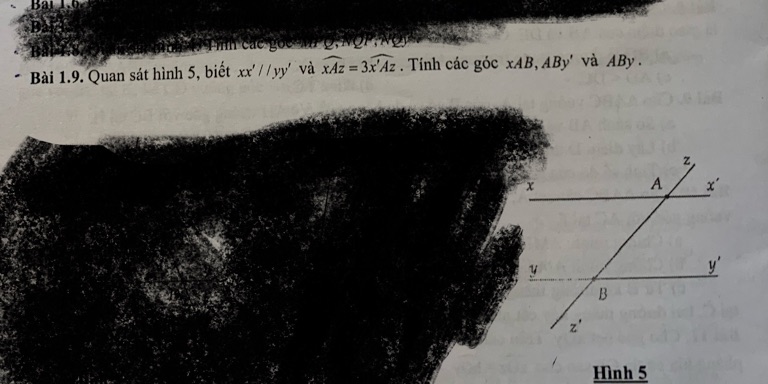 Bài 1.6.
Bài 1.8.
Tính các góc NQP,
- Bài 1.9. Quan sát hình 5, biết xx'//yy' và xAz = 3x'Az . Tính các góc xAB, ABy' và ABy .
z
x A x'
y y'
B
z'
Hình 5